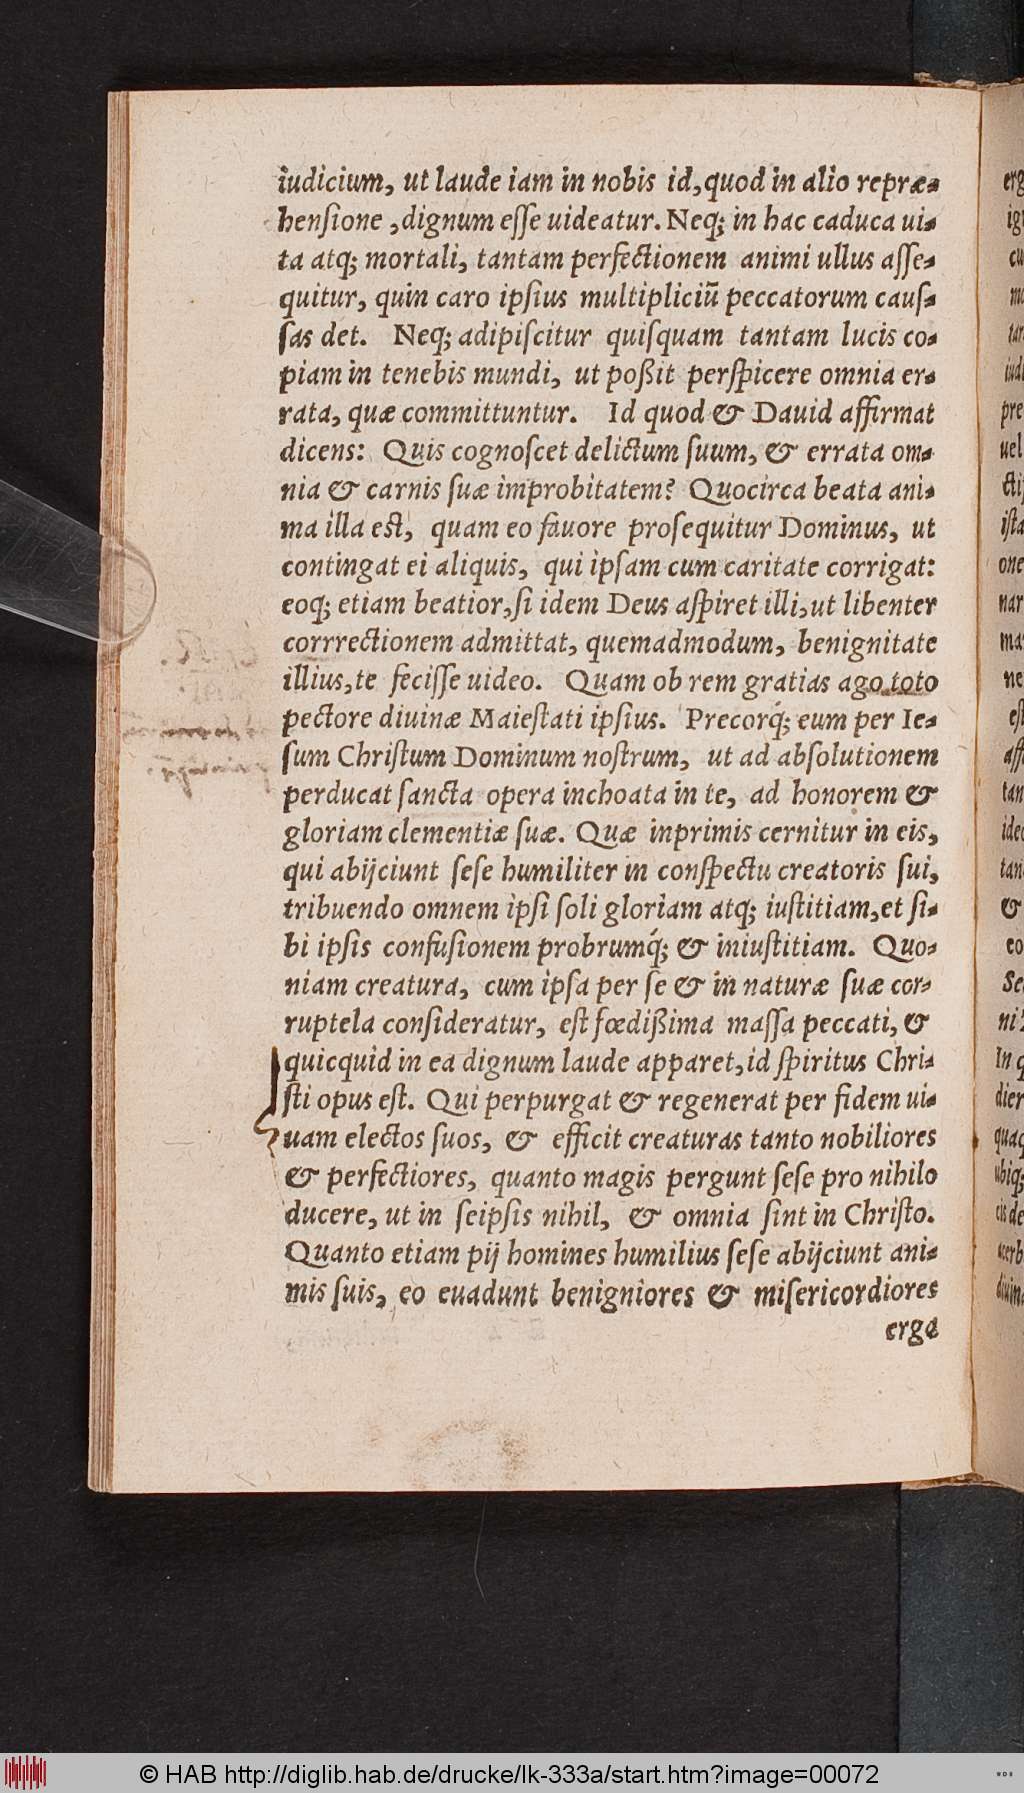 iudicium, ut laude iam in nobis id, quod in alio repræ-
hensione, dignum esse uideatur. Neq; in hac caduca ui-
ta atq; mortali, tantam perfectionem animi ullus asse-
quitur, quin caro ipsius multipliciũ peccatorum caus-
sas det. Neq; adipiscitur quisquam tantam lucis co-
piam in tenebis mundi, ut poßit perspicere omnia er-
rata, quæ committuntur. Id quod & Dauid affirmat
dicens: Quis cognoscet delictum suum, & errata om-
nia & carnis suæ improbitatem? Quocirca beata ani-
ma illa est, quam eo fauore prosequitur Dominus, ut
contingat ei aliquis, qui ipsam cum caritate corrigat:
eoq; etiam beatior, si idem Deus aspiret illi, ut libenter
corrrectionem admittat, quemadmodum, benignitate
illius, te fecisse uideo. Quam ob rem gratias ago toto
pectore diuinæ Maiestati ipsius. Precorq́; eum per Ie-
sum Christum Dominum nostrum, ut ad absolutionem
perducat sancta opera inchoata in te, ad honorem &
gloriam clementiæ suæ. Quæ inprimis cernitur in eis,
qui abijciunt sese humiliter in conspectu creatoris sui,
tribuendo omnem ipsi soli gloriam atq; iustitiam, et si-
bi ipsis confusionem probrumq́; & iniustitiam. Quo-
niam creatura, cum ipsa per se & in naturæ suæ cor-
ruptela consideratur, est fœdißima massa peccati, &
quicquid in ea dignum laude apparet, id spiritus Chri-
sti opus est. Qui perpurgat & regenerat per fidem ui-
uam electos suos, & efficit creaturas tanto nobiliores
& perfectiores, quanto magis pergunt sese pro nihilo
ducere, ut in seipsis nihil, & omnia sint in Christo.
Quanto etiam pij homines humilius sese abijciunt ani-
mis suis, eo euadunt benigniores & misericordiores
erga
© HAB http://diglib.hab.de/drucke/lk-333a/start.htm?image=00072